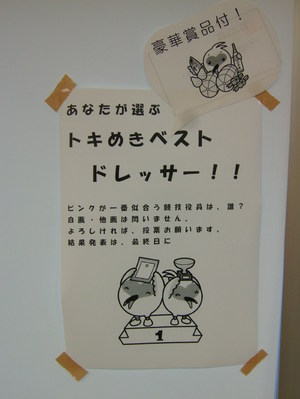 豪華賞品付！
あなたが選ぶ
トキめきベスト
ドレッサー！！
ピンクが一番似合う競技役員は、誰？
自画・他画は問いません。
よろしければ、投票お願います。
結果発表は、最終日に
1